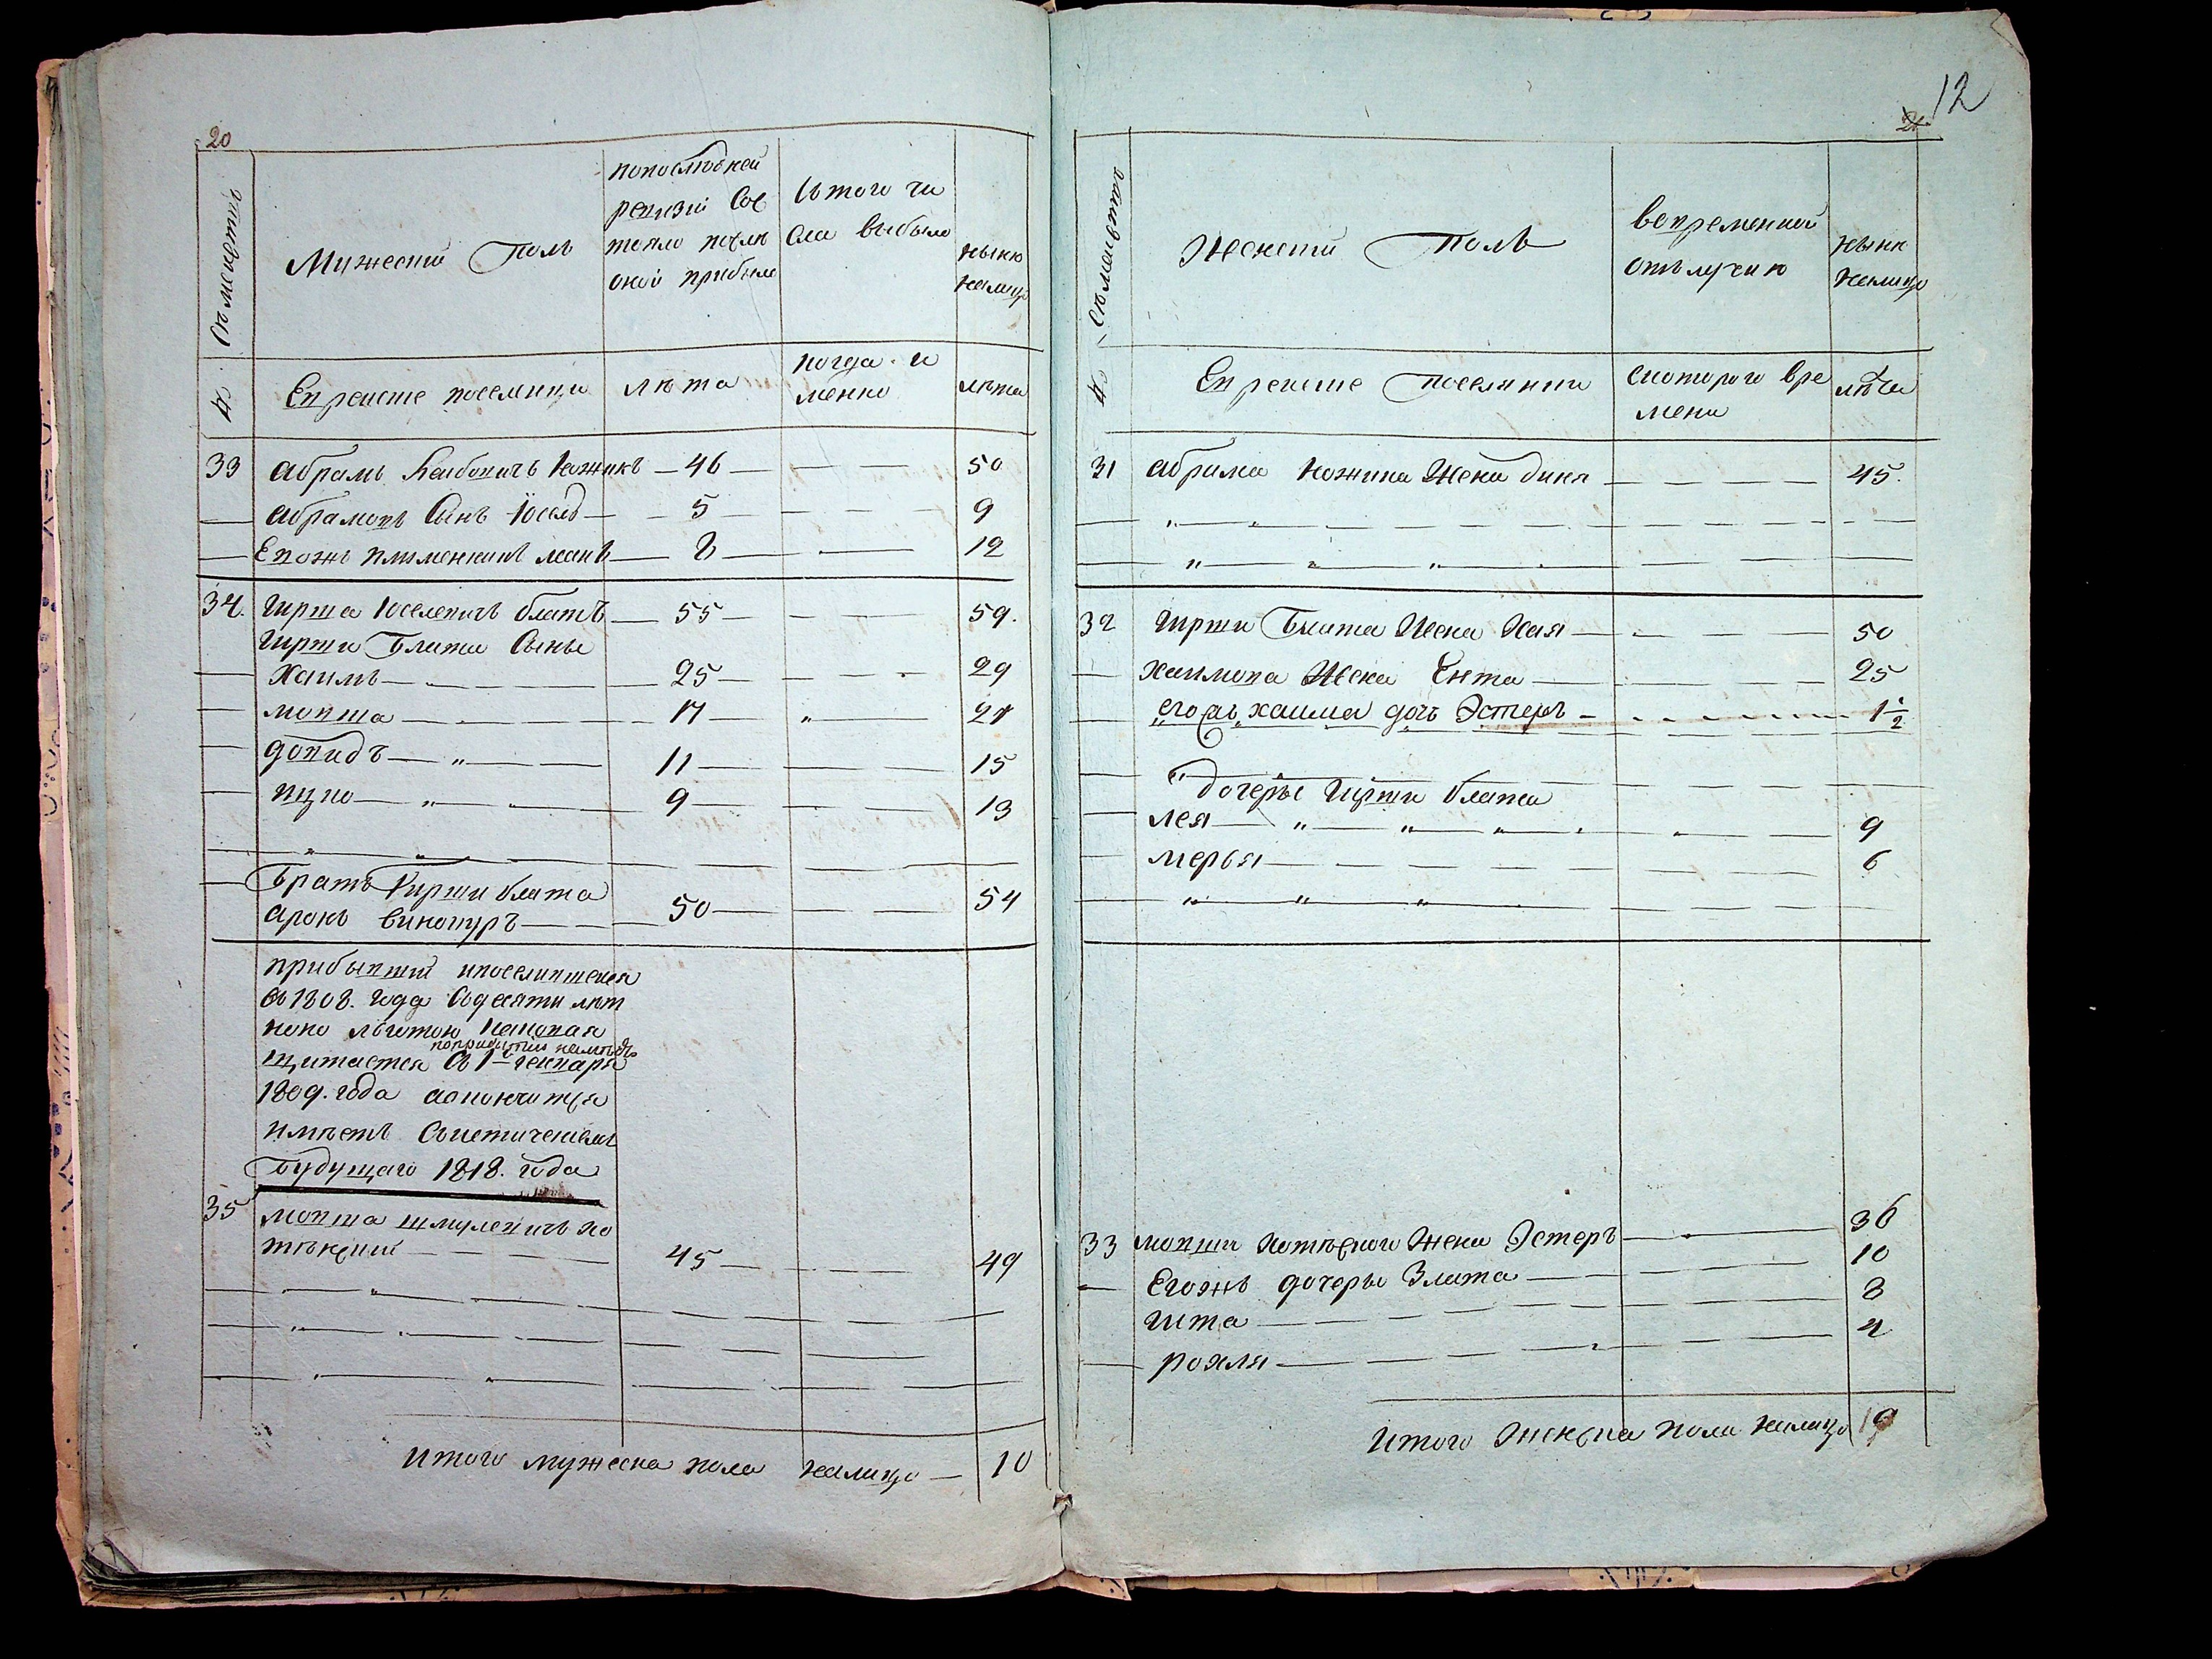 20
№ Съмействъ
Мужеский Полъ
попоследней
ревизий Сос
тояло послѣ
оной прибыло
Isтого чи
сла выбыло
нынѣ
налицо
Еврейские поселянци
лѣта
когда и
менно
лѣта
33 Абрамъ Ножикъ — 46 — — — 50
Абрамовъ Сынъ Іосель — 5 — — — 9
Евожъ племянникъ — 8 — — 12
34. Гирша Іоселевичъ блатъ — 55 — — — 59.
Гирши Блата Сынъы
Хаимъ — 25 — — — 29
мовша — 17 — „ — 21
довидъ — „ — 11 — — 15
ицко — „ — 9 — — 13
Братъ Гирши блата
аронъ винокуръ — 50 — — 54
прибывший ипоселившейся
въ 1808. года Съдесяти лѣт
нею льготою Каковая
поприбытии
щитается Съ 1 генваря
1809. года аокончится
имѣетъ Съистечениемъ
будущаго 1818. года
35 мовша шмулевичъ Ко
тѣнский — 45 — — 49
Итого мужеска пола налицо — 10
12
21
№ Съмействъ
Женский Полъ
вовременной
отълучкѣ
нынѣ
налицо
Еврейские поселянки
скоторого вре
мени
лѣта
31 Абрама Ножика Жена — — — — 45.
32 Гирши Блата Жена Хая — — — — 50
Хаимова Жена Ента — — 25
егосъ хаима дочь Эстеръ — 1 1/2
дочеръы Гирши блата
лея — „ — „ — 9
мерья — — — 6
33 мовши Жена Эстеръ — 36
Егожъ дочеръы Злата — 10
Гита — — — 8
рохля — — — 4
Итого Женска пола налицо 19